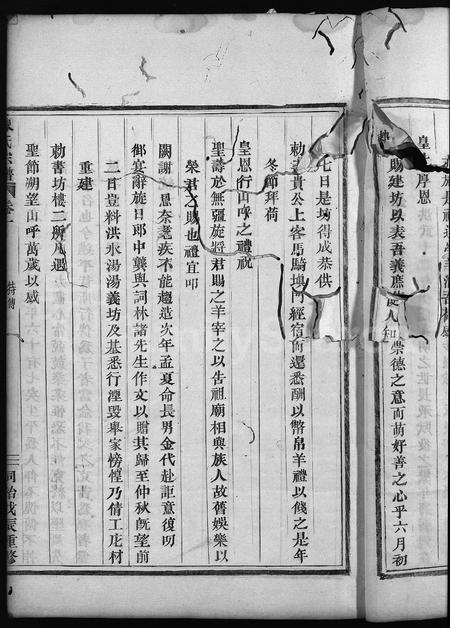 皇上厚恩
賜建坊以表吾義庶使人知崇德之意而萌好善之心乎六月初
七日是坊得成恭供
勅書貴公上客馬騎塡門經宿而還悉酬以幣帛羊禮以餞之是年
冬節拜荷
皇恩行山呼之禮祝
聖壽於無彊旋將君賜之羊宰之以告祖廟相與族人故舊娛樂以
榮君之賜也禮宜叩
闕謝恩奈耄疾不能趨造次年孟夏命長男金代赴詎意復叨
御宴辭旋日郎中龔與詞林諸先生作文以贈其歸至仲秋既望前
二日豈料洪水湯湯義坊及基悉行湮毀舉家徬惶乃倩工庀材
重建
勅書坊樓二所凡遇
聖節朔望山呼萬歲以感
氏宗譜 卷一 特傳 三 同治戊辰重修